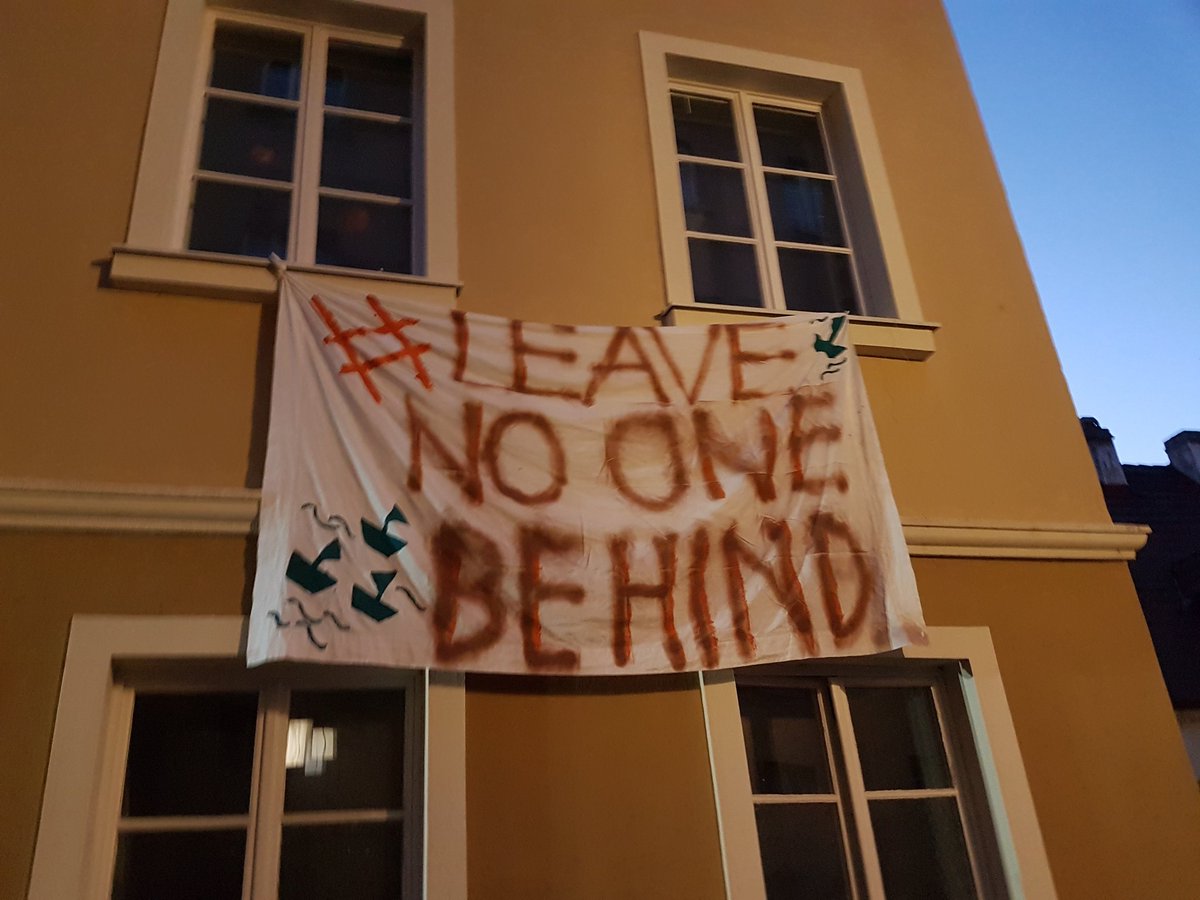 #LEAVE
NO ONE
BEHIND